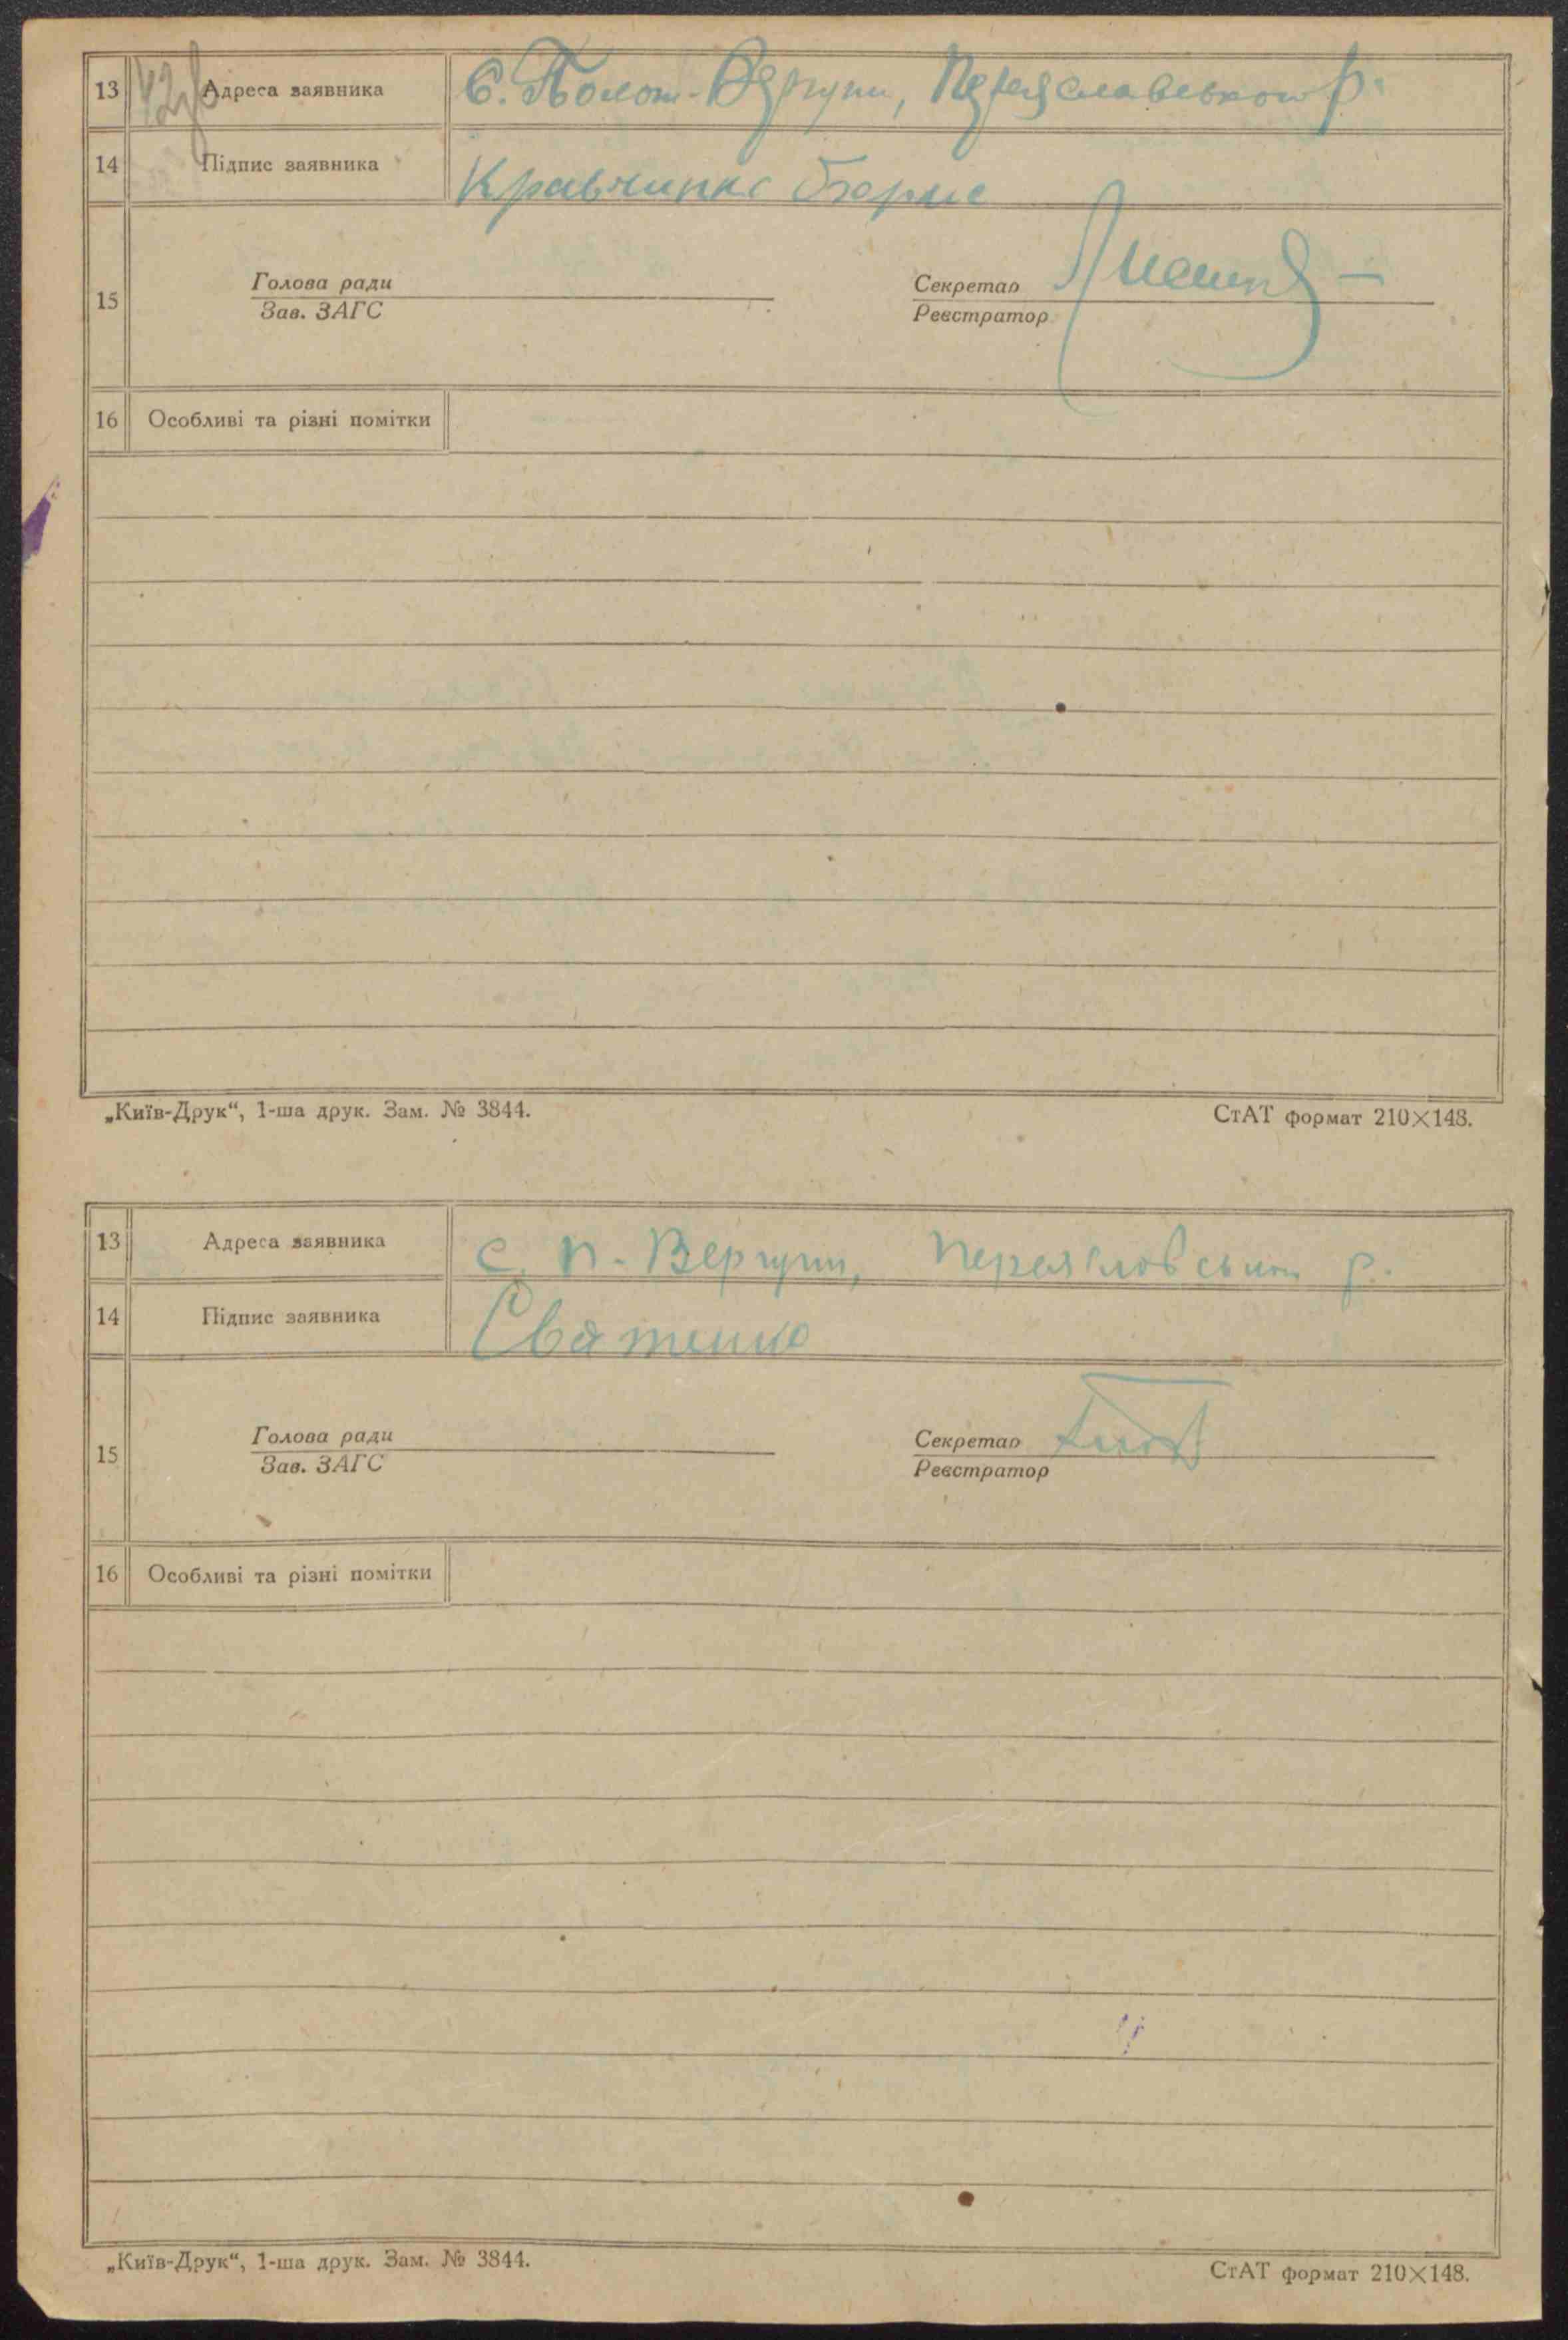 13 Адреса заявника С. Полог-Вергуни, Переяславського р.
14 Підпис заявника Кравчинко Борис
15 Голова ради Секретар
Зав. ЗАГС Реєстратор
16 Особливі та різні помітки
„Київ-Друк“, 1-ша друк. Зам. № 3844. СтАТ формат 210×148.
13 Адреса заявника с. П.-Вергуни, Переяславськ р.
14 Підпис заявника Святенко
15 Голова ради Секретар
Зав. ЗАГС Реєстратор
16 Особливі та різні помітки
„Київ-Друк“, 1-ша друк. Зам. № 3844. СтАТ формат 210×148.